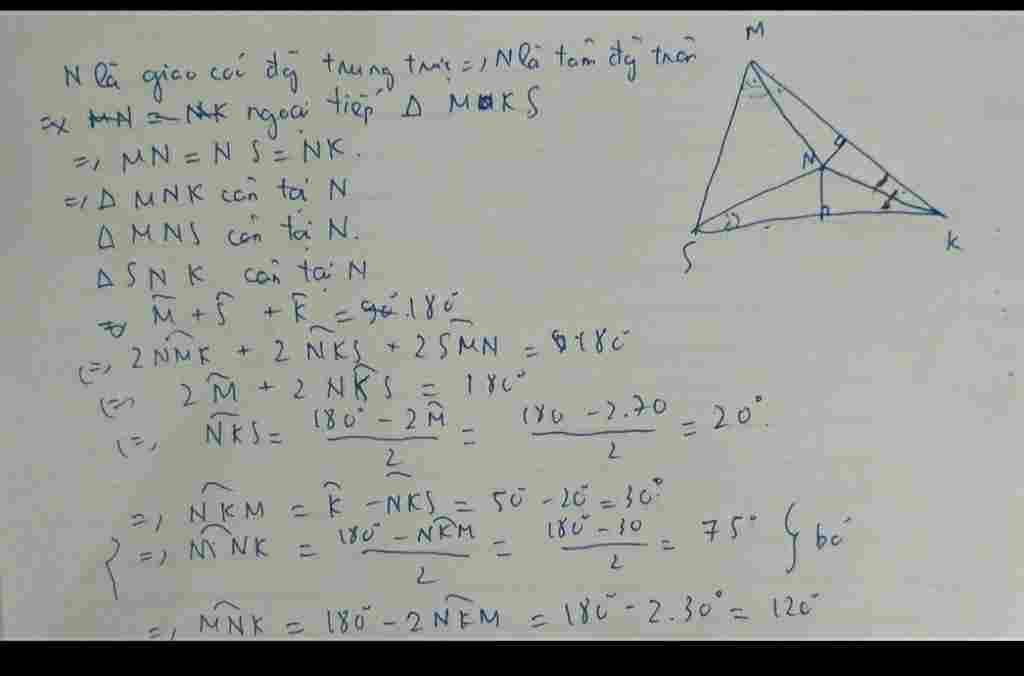 M
N là giao của đg trung trực =, N là tâm đg tròn
=> MN = NK ngoại tiếp Δ MKS
=, MN = NS = NK.
=, Δ MNK cân tại N
Δ MNS cân tại N.
Δ SNK cân tại N
=> M̂ + Ŝ + K̂ = 180°
(=, 2 NMK + 2 NKS + 2 SMN = 180°
(=, 2 M̂ + 2 NKS = 180°
(=, NKS = (180° - 2M̂)/2 = (180 - 2.70)/2 = 20°.
=, NKM = K̂ - NKS = 50° - 20° = 30°
=, MNK = (180° - NKM)/2 = (180° - 30)/2 = 75° } bỏ
=, MNK = 180° - 2 NKM = 180° - 2.30° = 120°
N
S
K